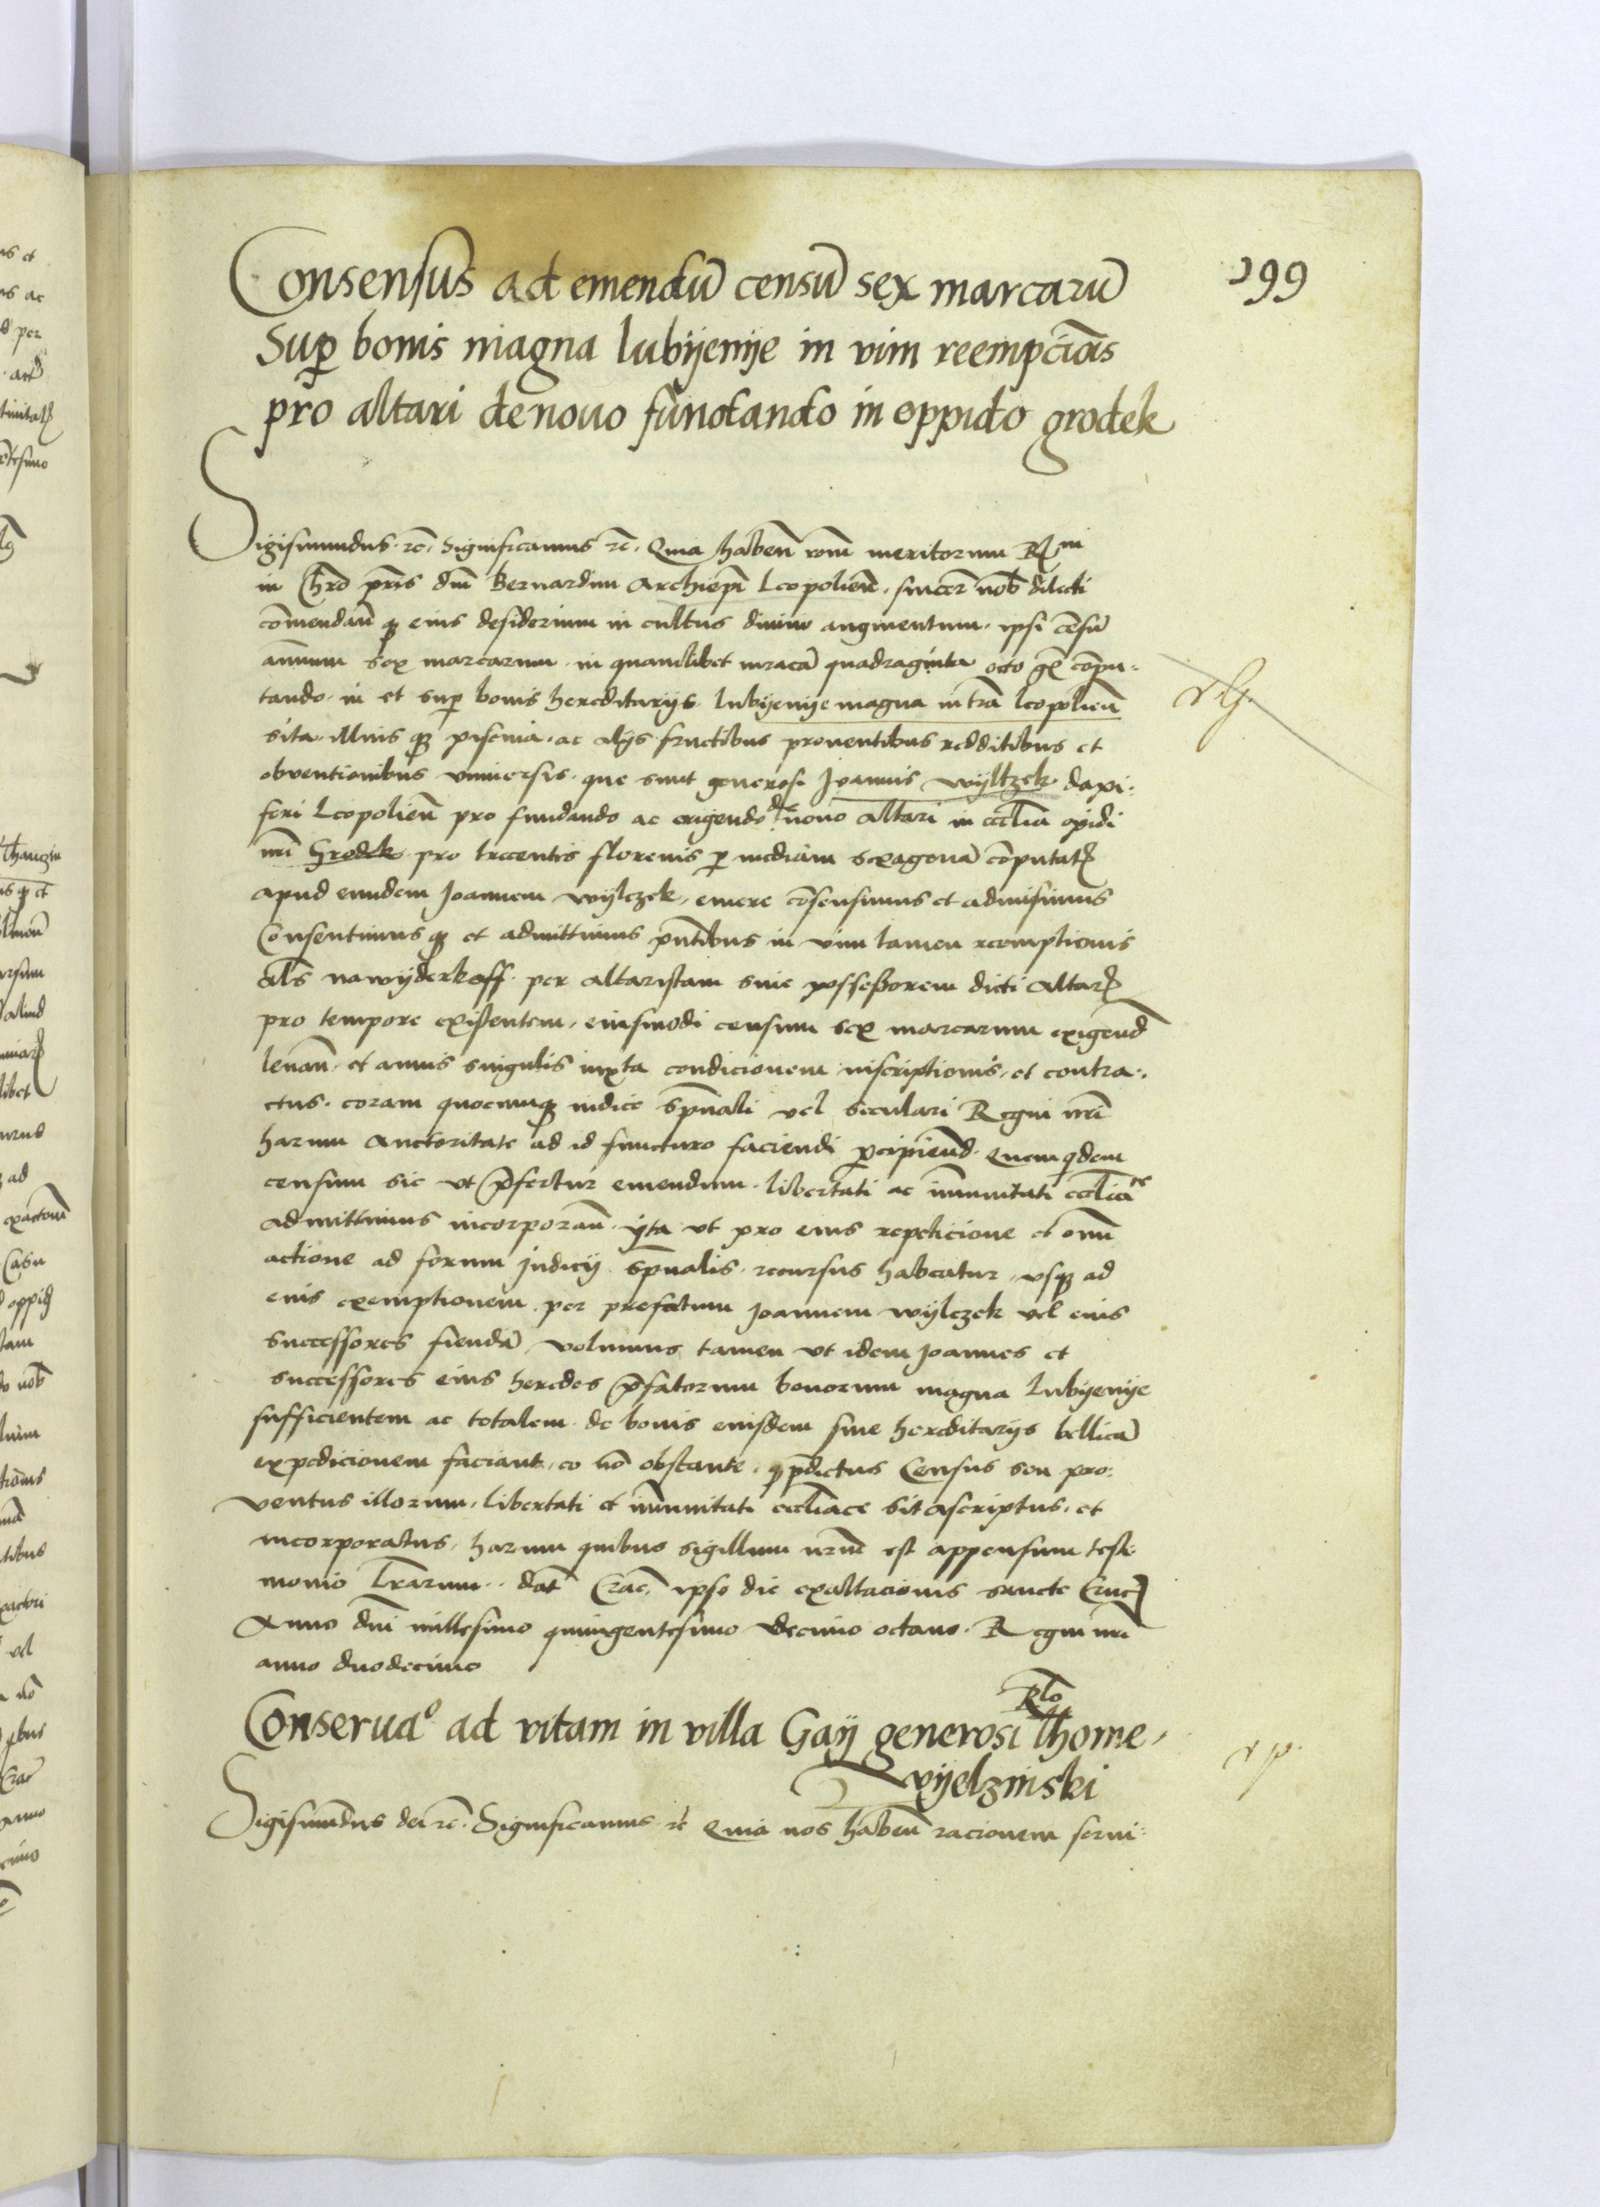 199
Consensus ad emendu̅ censu̅ sex marcaru̅
Sup̱ bonis magna lubijenije in vim reempcio̅is
pro altari de nouo fundando in oppido grodek
Sigismundus · rc̅ · Significamus rc̅ · Quia haben̅ ro̅m meritorum Rmi
in Chr̅o pr̅is dn̅i Bernardini Archiep̅i Leopolien̅ · sincer̅ nob̅ dilecti
co̅mendan̅ q̨ eius desiderium in cultus diuini augmentum · ipsi ce̅su̅
annuum sex marcarum · in quamlibet marca̅ quadraginta octo g̅r co̅pu-
tando · in et sup̱ bonis hereditarijs · lubijenije magna in tr̅a leopolien̅
sita · illius q̨ piscina · ac alijs fructibus prouentibus redditibus et
obventionibus vniuersis · que sunt generosi Joannis wijltzek dapi-
feri Leopolien̅ pro fundando ac erigendo de nouo altari in eccl̅ia opidi
nr̅i Grodek pro trecentis florenis p̱ mediam sexagena̅ co̅putat̅
apud eundem Joannem wijlczek, emere co̅sensimus et admisimus
Consentimus q̨ et admittimus pn̅tibus in vim tamen reemptionis
al̅s nawijderkaff · per altaristam siue possessorem dicti altar̅
pro tempore existentem, eiusmodi censum sex marcarum exigend̅
leuan̅ · et annis singulis iuxta condicionem inscriptionis, et contra-
ctus · coram quocumq̨ iudice sp̅uali vel seculari Regni nr̅i
harum auctoritate ad id functuro faciendi p̱cipiend̅ · Quem q̱dem
censum sic ut p̅fertur emendum · libertati ac im̅unitati eccl̅ia̅e
admittimus incorporan̅ · yta ut pro eius repeticione et omn̅i
actione ad forum Judicij sp̅ualis · recursus habeatur, vsq̨ ad
eius exemptionem per prefatum Joannem wijlczek vel eius
successores fienda̅ · volumus tamen ut idem Joannes et
successores eius heredes p̅fatorum bonorum magna Lubijenije
sufficientem ac totalem · de bonis eiusdem siue hereditarijs bellica̅
expedicionem faciant, eo no̅ obstante, q̱ p̅dictus Census seu pro-
ventus illorum, libertati et im̅unitati eccl̅iace sit ascriptus, et
incorporatus, harum quibus sigillum nr̅um est appensum testi-
monio Lr̅arum · · dat̅ Crac̅, ipso die exaltacionis sancte Cruc̅
Anno dn̅i millesimo quingentesimo decimo octauo · Regni nr̅i
anno duodecimo
Rlo̅
Conserua⁰ ad vitam in villa Gaij generosi Thome
vijelzinski
Sigismu̅dus dei rc̅ · Significamus rc̅ Quia nos haben̅ racionem serui-